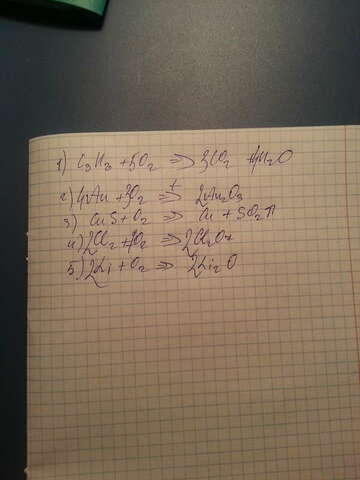 1) C₃H₃ + 5O₂ ⇒ 3CO₂ + 4H₂O
2) 4Au + 3O₂ ⇒ᵗ 2Au₂O₃
3) CuS + O₂ ⇒ Cu + SO₂↑
4) 2Cl₂ + 7O₂ ⇒ 2Cl₂O₇
5) 2Li + O₂ ⇒ 2Li₂O